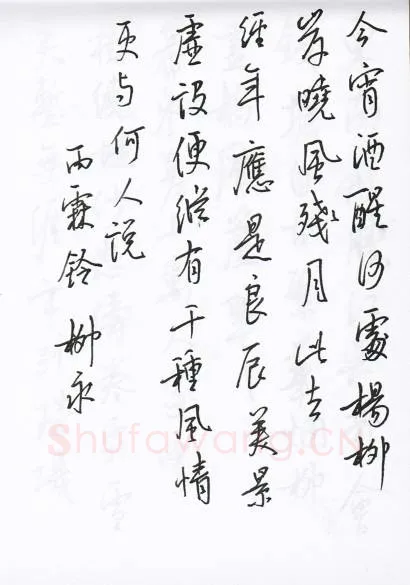 今宵酒醒何處楊柳
岸曉風殘月此去
經年應是良辰美景
虛設便縱有千種風情
更与何人説
雨霖鈴 柳永
Shufawang.CN